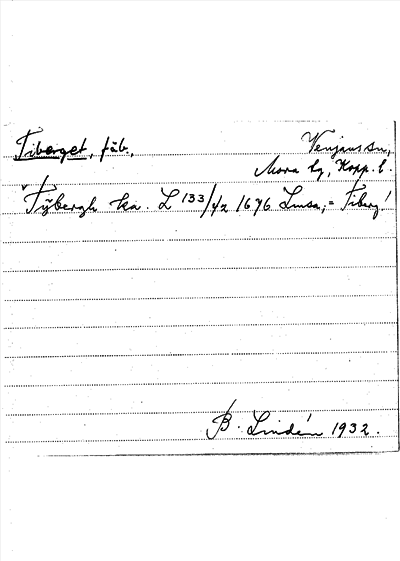 Tiberget, fäb., Venjans sn,
Mora tg, Kopp. l.
Tÿbergh ka. L 133/42 1676 Lmsa; = Tiberg!
B. Lindén 1932.